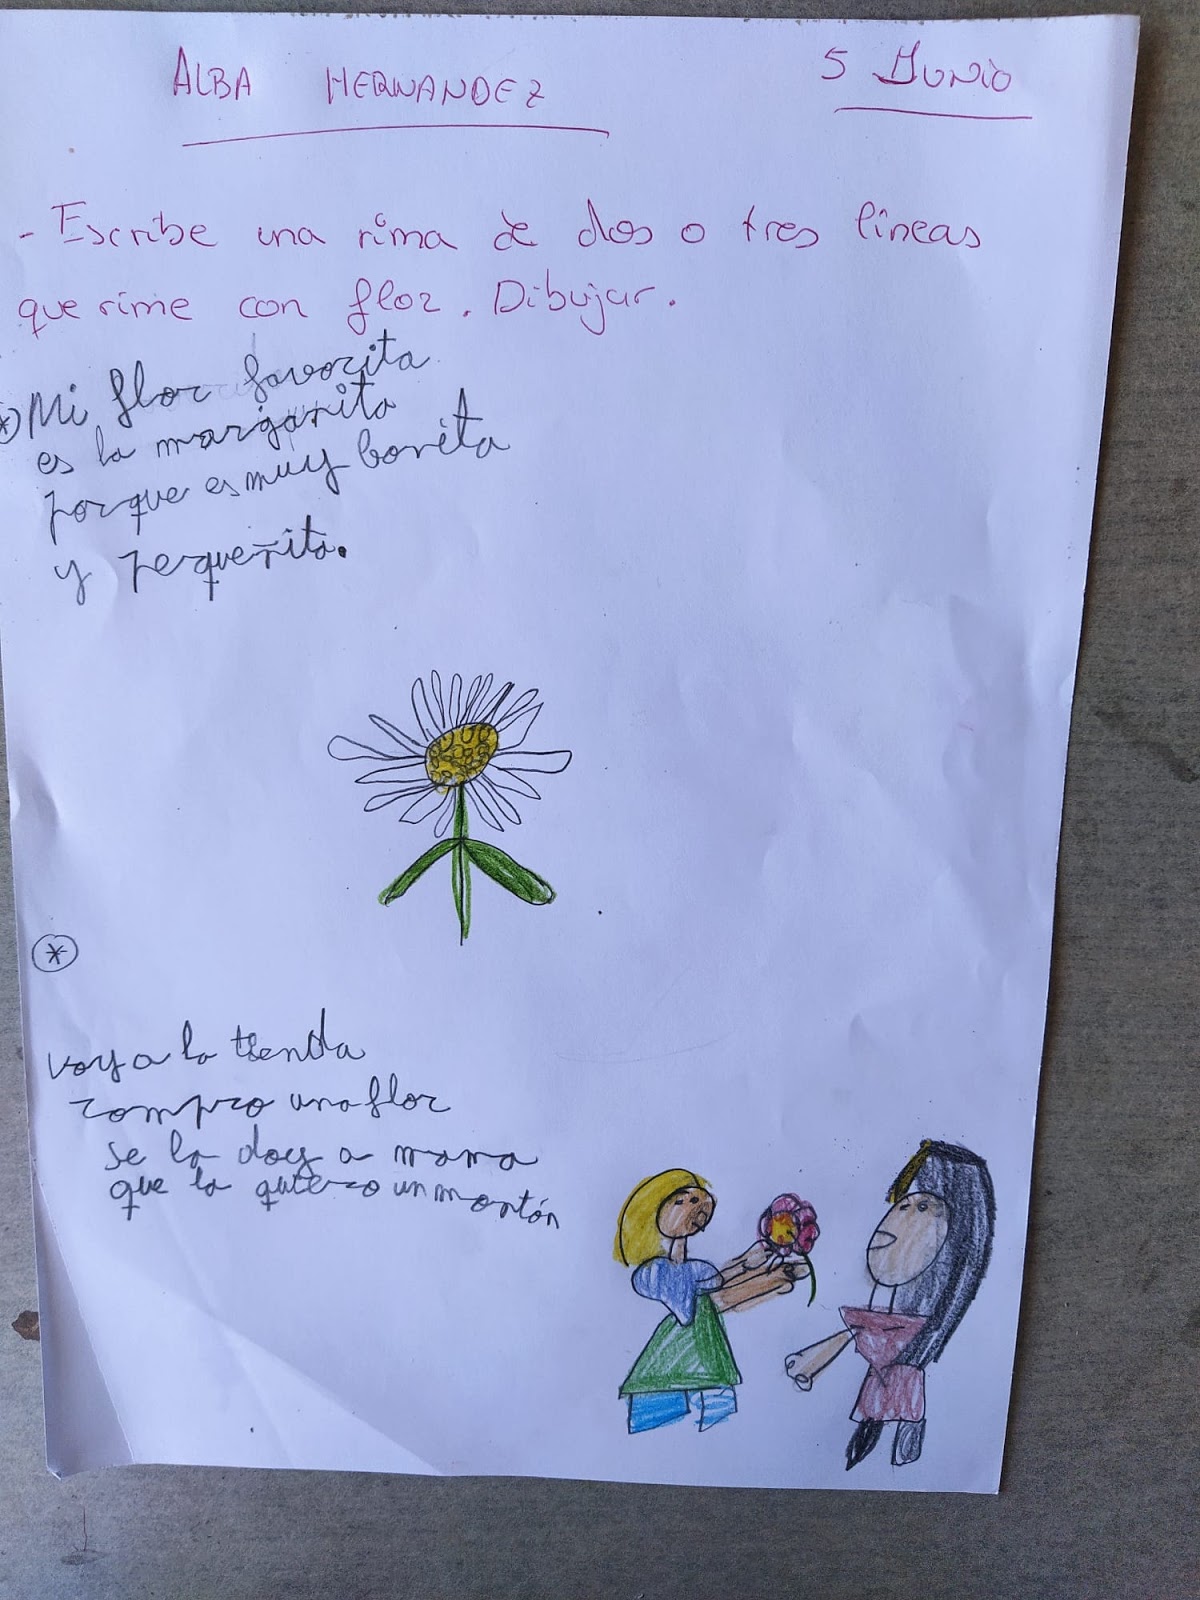 ALBA HERNANDEZ
5 JUNIO
- Escribe una rima de dos o tres líneas
que rime con flor. Dibujar.
Mi flor favorita
es la margarita
porque es muy bonita
y pequeñita.
voy a la tienda
compro una flor
se la doy a mama
que la quiero un montón